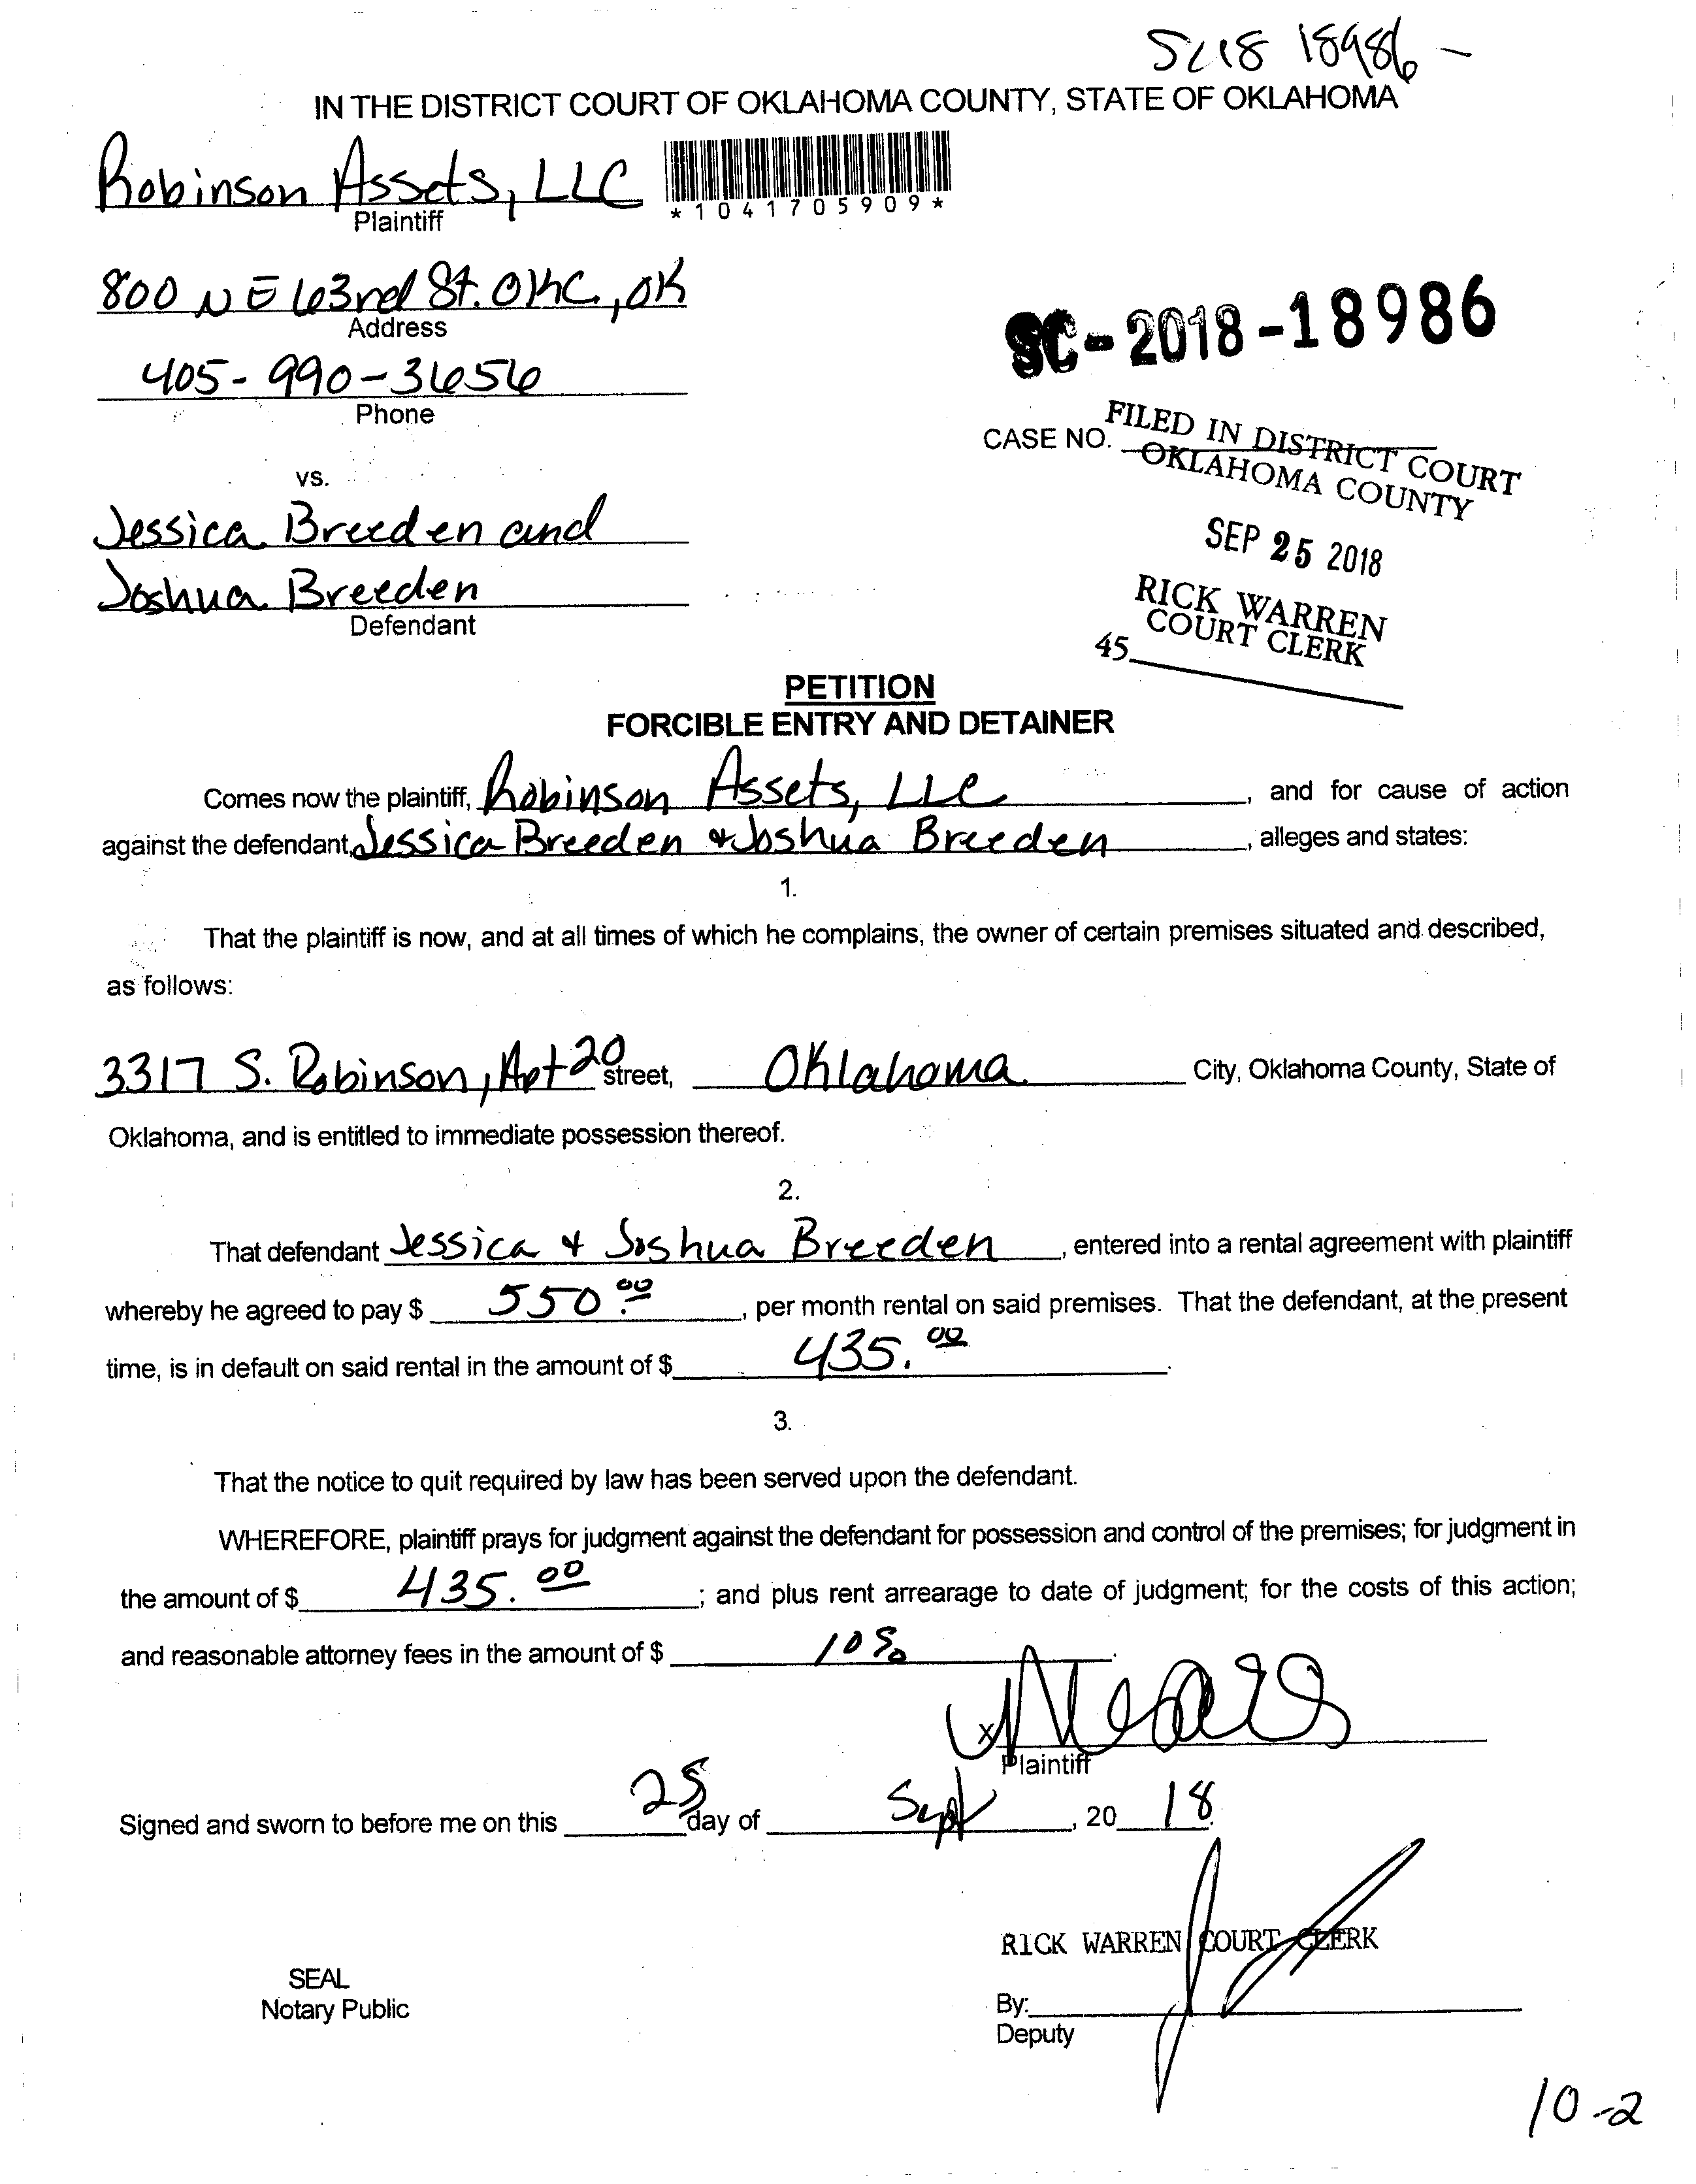 SC18 18986 -
IN THE DISTRICT COURT OF OKLAHOMA COUNTY, STATE OF OKLAHOMA
Robinson Assets, LLC
*1041705909*
Plaintiff
800 NE 63rd St. OKC, OK
Address
SC-2018-18986
405-990-3656
Phone
CASE NO.
FILED IN DISTRICT COURT
OKLAHOMA COUNTY
vs.
Jessica Breeden and
SEP 25 2018
Joshua Breeden
Defendant
RICK WARREN
COURT CLERK
45
PETITION
FORCIBLE ENTRY AND DETAINER
Comes now the plaintiff, Robinson Assets, LLC, and for cause of action
against the defendant, Jessica Breeden & Joshua Breeden, alleges and states:
1.
That the plaintiff is now, and at all times of which he complains, the owner of certain premises situated and described,
as follows:
3317 S. Robinson, Apt 20 street, Oklahoma City, Oklahoma County, State of
Oklahoma, and is entitled to immediate possession thereof.
2.
That defendant Jessica & Joshua Breeden, entered into a rental agreement with plaintiff
whereby he agreed to pay $ 550.00, per month rental on said premises. That the defendant, at the present
time, is in default on said rental in the amount of $ 435.00.
3.
That the notice to quit required by law has been served upon the defendant.
WHEREFORE, plaintiff prays for judgment against the defendant for possession and control of the premises; for judgment in
the amount of $ 435.00; and plus rent arrearage to date of judgment; for the costs of this action;
and reasonable attorney fees in the amount of $
x
Plaintiff
Signed and sworn to before me on this 25 day of Sept, 2018.
RICK WARREN COURT CLERK
SEAL
Notary Public
By:
Deputy
10-2